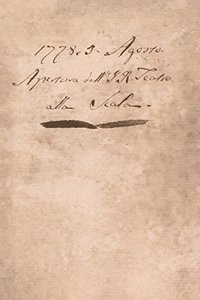 1778. 3. Agosto.
Apertura dell' I. R. Teatro
alla Scala.